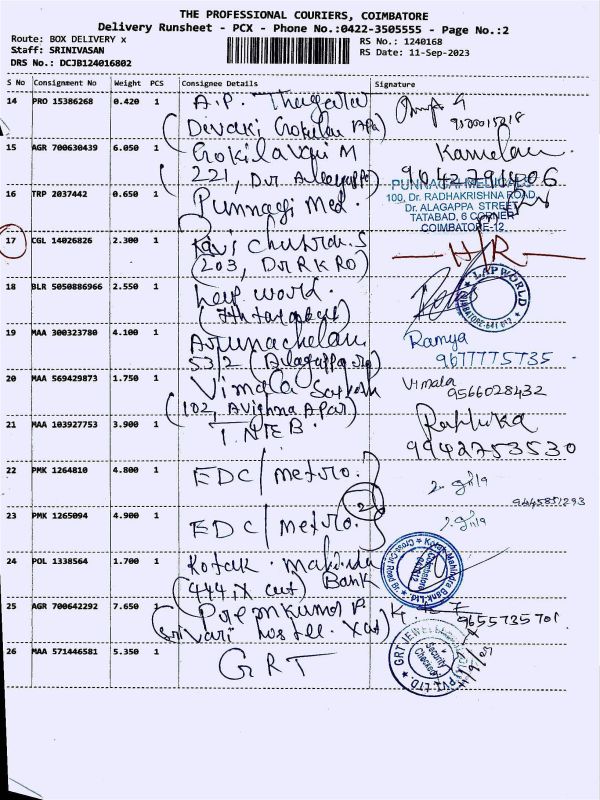 THE PROFESSIONAL COURIERS, COIMBATORE
Delivery Runsheet - PCX - Phone No.:0422-3505555 - Page No.:2
Route: BOX DELIVERY x
RS No.: 1240168
Staff: SRINIVASAN
RS Date: 11-Sep-2023
DRS No.: DCJB124016802
S No Consignment No Weight PCS Consignee Details Signature
14 PRO 15386268 0.420 1 A.P.
(Devaki
15 AGR 700630439 6.050 1 Gokilavani M
(221, Dr. Alagappa)
16 TRP 2037442 0.650 1 Punnagi Med.
PUNNAGAI MEDICALS
100, Dr. RADHAKRISHNA ROAD,
Dr. ALAGAPPA STREET
TATABAD, 6 CORNER
COIMBATORE-12.
17 CGL 14026826 2.300 1 Ravi S
(203, Dr R K RO)
18 BLR 5050886966 2.550 1 world.
LAP WORLD
19 MAA 300323780 4.100 1 Arunachalam
53/2 (Alagappa
Ramya
9677775735
20 MAA 569429873 1.750 1 Vimala
(102, Avighna Apar)
Vimala
9566028432
21 MAA 103927753 3.900 1 T.N.E.B.
9942753530
22 PMK 1264810 4.800 1 EDC/metro.
9445851293
23 PMK 1265094 4.900 1 EDC/metro.
2
24 POL 1338564 1.700 1 Kotak. Mahinda
(444, Bank
Kotak Mahindra Bank Ltd.
Coimbatore
25 AGR 700642292 7.650 1 Premkumar P
(Srivari
9655735701
26 MAA 571446581 5.350 1 GRT
GRT JEWELLERS PVT. LTD.
Security
Checked